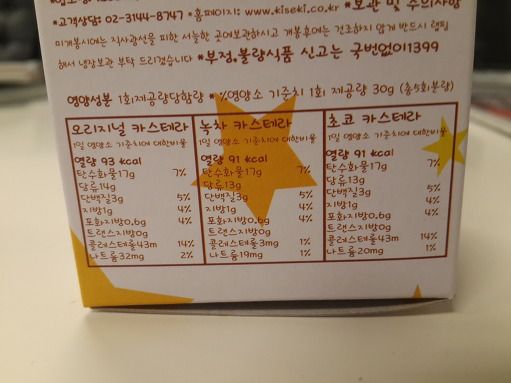 *고객상담: 02-3144-8747 *홈페이지: www.kiseki.co.kr *보관 및 주의사항
미개봉시에는 직사광선을 피한 서늘한 곳에보관하시고 개봉후에는 건조하지 않게 반드시 랩핑
해서 냉장보관 부탁 드리겠습니다 *부정.불량식품 신고는 국번없이1399
영양성분 1회제공량당함량 * %영양소 기준치 1회 제공량 30g (총5회분량)
오리지널 카스테라
1일 영양소 기준치에 대한비율
열량 93 kcal
탄수화물17g 7%
당류14g
단백질3g 5%
지방1g 4%
포화지방0.6g 4%
트랜스지방0g
콜레스테롤43m 14%
나트륨32mg 2%
녹차 카스테라
1일 영양소 기준치에 대한비율
열량 91 kcal
탄수화물17g 7%
당류13g
단백질3g 5%
지방1g 4%
포화지방0.6g 4%
트랜스지방0g
콜레스테롤3mg 1%
나트륨19mg 1%
초코 카스테라
1일 영양소 기준치에 대한비율
열량 91 kcal
탄수화물17g 7%
당류13g
단백질3g 5%
지방1g 4%
포화지방0.6g 4%
트랜스지방0g
콜레스테롤43m 14%
나트륨20mg 1%